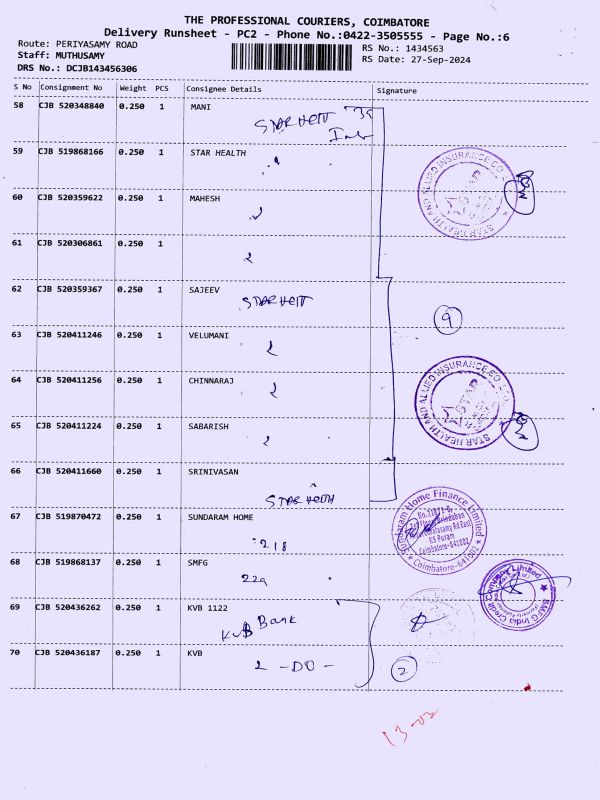 THE PROFESSIONAL COURIERS, COIMBATORE
Delivery Runsheet - PC2 - Phone No.:0422-3505555 - Page No.:6
Route: PERIYASAMY ROAD
Staff: MUTHUSAMY
DRS No.: DCJB143456306
RS No.: 1434563
RS Date: 27-Sep-2024
S No Consignment No Weight PCS Consignee Details Signature
58 CJB 520348840 0.250 1 MANI
59 CJB 519868166 0.250 1 STAR HEALTH
60 CJB 520359622 0.250 1 MAHESH
STAR HEALTH AND ALLIED INSURANCE CO.
61 CJB 520306861 0.250 1
62 CJB 520359367 0.250 1 SAJEEV
9
63 CJB 520411246 0.250 1 VELUMANI
64 CJB 520411256 0.250 1 CHINNARAJ
STAR HEALTH AND ALLIED INSURANCE CO.
65 CJB 520411224 0.250 1 SABARISH
66 CJB 520411660 0.250 1 SRINIVASAN
67 CJB 519870472 0.250 1 SUNDARAM HOME
218
Sundaram Home Finance Limited
RS Puram
Coimbatore-641002
* Coimbatore-641002 *
68 CJB 519868137 0.250 1 SMFG
229
SMFG India Credit Company Limited
69 CJB 520436262 0.250 1 KVB 1122
KVB Bank
70 CJB 520436187 0.250 1 KVB
-DO-
2
13-02